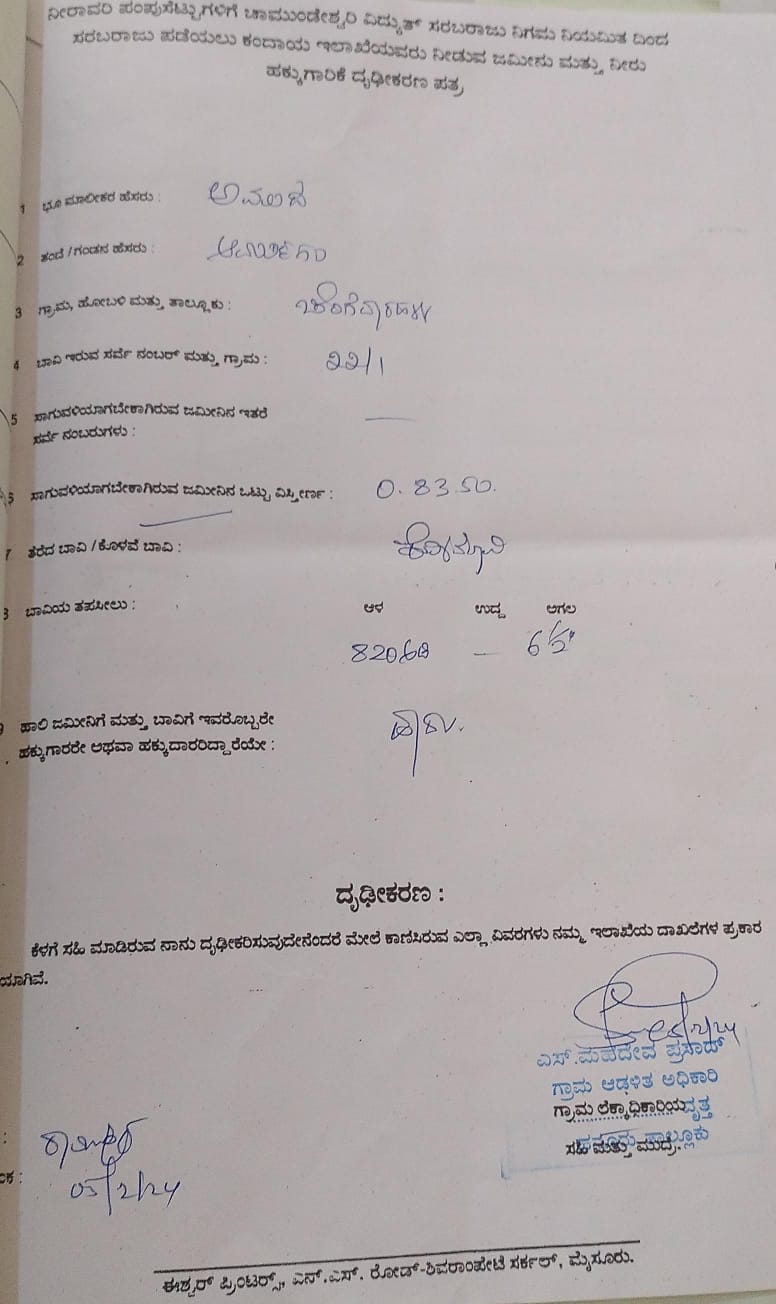 ನೀರಾವರಿ ಪಂಪುಸೆಟ್ಟುಗಳಿಗೆ ಚಾಮುಂಡೇಶ್ವರಿ ವಿದ್ಯುತ್ ಸರಬರಾಜು ನಿಗಮ ನಿಯಮಿತ ದಿಂದ
ಸರಬರಾಜು ಪಡೆಯಲು ಕಂದಾಯ ಇಲಾಖೆಯವರು ನೀಡುವ ಜಮೀನು ಮತ್ತು ನೀರು
ಹಕ್ಕುಗಾರಿಕೆ ದೃಢೀಕರಣ ಪತ್ರ
1 ಭೂ ಮಾಲೀಕರ ಹೆಸರು :
2 ತಂದೆ/ಗಂಡನ ಹೆಸರು :
3 ಗ್ರಾಮ, ಹೋಬಳಿ ಮತ್ತು ತಾಲ್ಲೂಕು :
4 ಬಾವಿ ಇರುವ ಸರ್ವೆ ನಂಬರ್ ಮತ್ತು ಗ್ರಾಮ : 22/1
5 ಸಾಗುವಳಿಯಾಗಬೇಕಾಗಿರುವ ಜಮೀನಿನ ಇತರೆ —
ಸರ್ವೆ ನಂಬರುಗಳು :
ಸಾಗುವಳಿಯಾಗಬೇಕಾಗಿರುವ ಜಮೀನಿನ ಒಟ್ಟು ವಿಸ್ತೀರ್ಣ : 0.83.50.
7 ತೆರೆದ ಬಾವಿ/ಕೊಳವೆ ಬಾವಿ :
ಬಾವಿಯ ತಪಸೀಲು : ಆಳ ಉದ್ದ ಅಗಲ
820 — 6½"
ಹಾಲಿ ಜಮೀನಿಗೆ ಮತ್ತು ಬಾವಿಗೆ ಇವರೊಬ್ಬರೇ
ಹಕ್ಕುಗಾರರೇ ಅಥವಾ ಹಕ್ಕುದಾರರಿದ್ದಾರೆಯೇ :
ದೃಢೀಕರಣ :
ಕೆಳಗೆ ಸಹಿ ಮಾಡಿರುವ ನಾನು ದೃಢೀಕರಿಸುವುದೇನೆಂದರೆ ಮೇಲೆ ಕಾಣಿಸಿರುವ ಎಲ್ಲಾ ವಿವರಗಳು ನಮ್ಮ ಇಲಾಖೆಯ ದಾಖಲೆಗಳ ಪ್ರಕಾರ
ಯಾಗಿವೆ.
ಎಸ್.ಮಹದೇವ ಪ್ರಸಾದ್
ಗ್ರಾಮ ಆಡಳಿತ ಅಧಿಕಾರಿ
ಗ್ರಾಮ ಲೆಕ್ಕಾಧಿಕಾರಿಯ ವೃತ್ತ
ತಾಲ್ಲೂಕು
ಸಹಿ ಮತ್ತು ಮುದ್ರೆ.
05/2/24
ಈಶ್ವರ್ ಪ್ರಿಂಟರ್ಸ್, ಎನ್.ಎಸ್. ರೋಡ್-ಶಿವರಾಂಪೇಟೆ ಸರ್ಕಲ್, ಮೈಸೂರು.